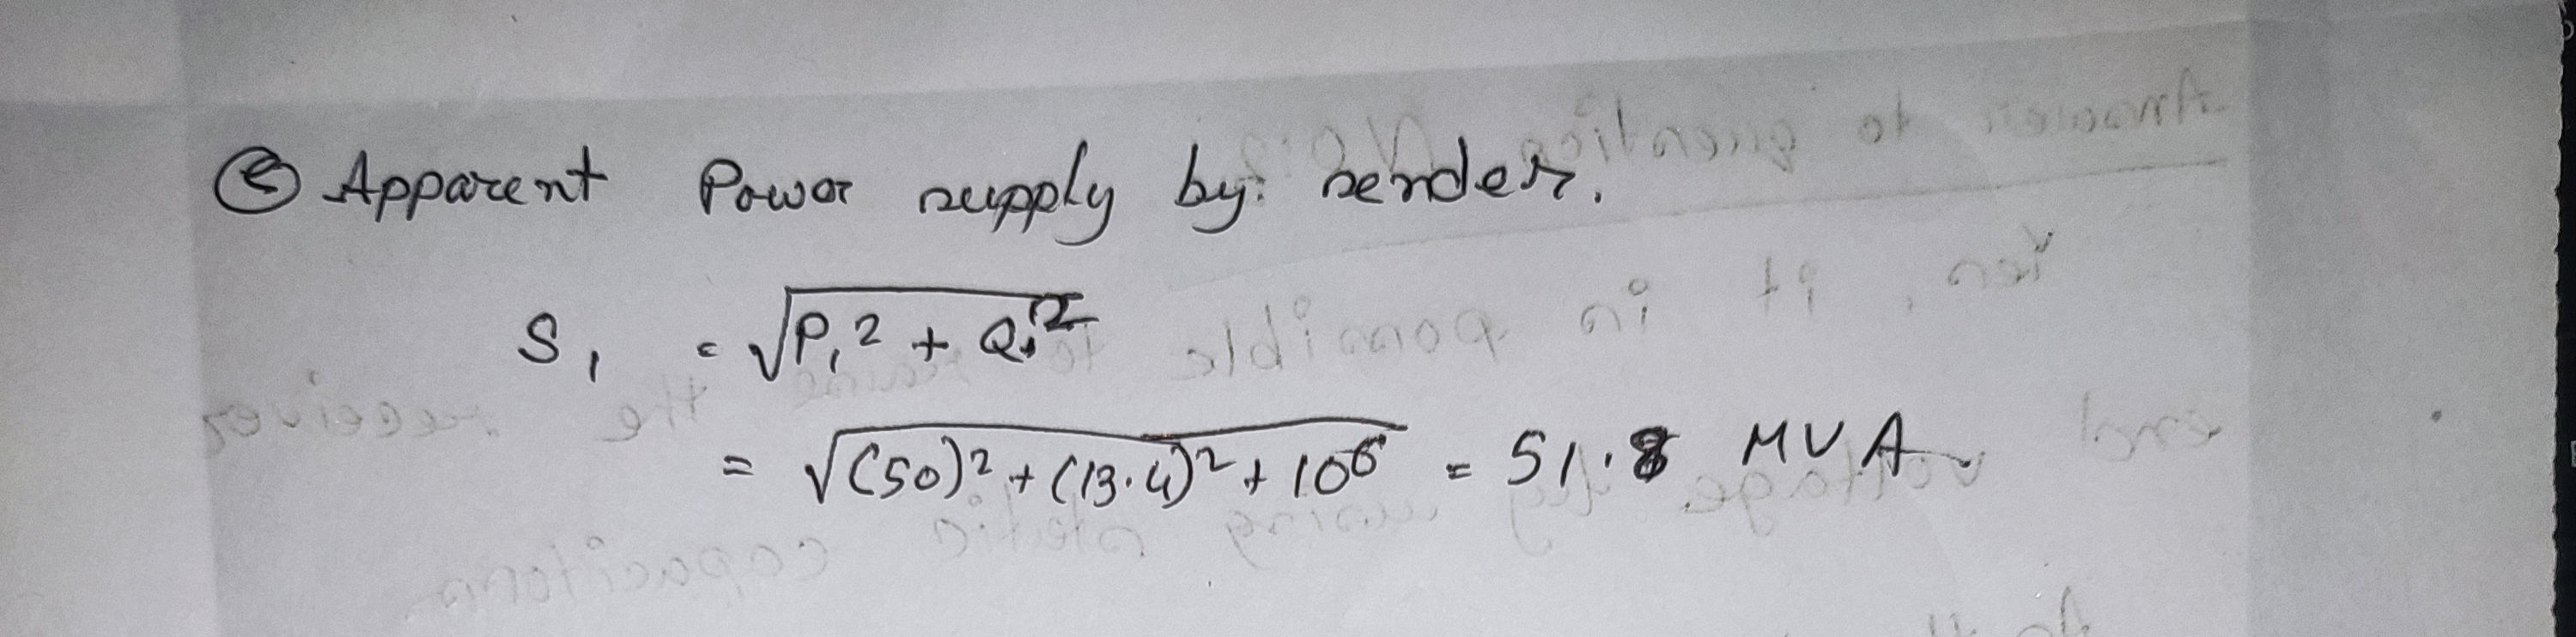 ⓔ Apparent Power supply by sender.
S₁ = √P₁² + Q₁²
= √(50)² + (13.4)² + 10⁶ = 51.8 MVA